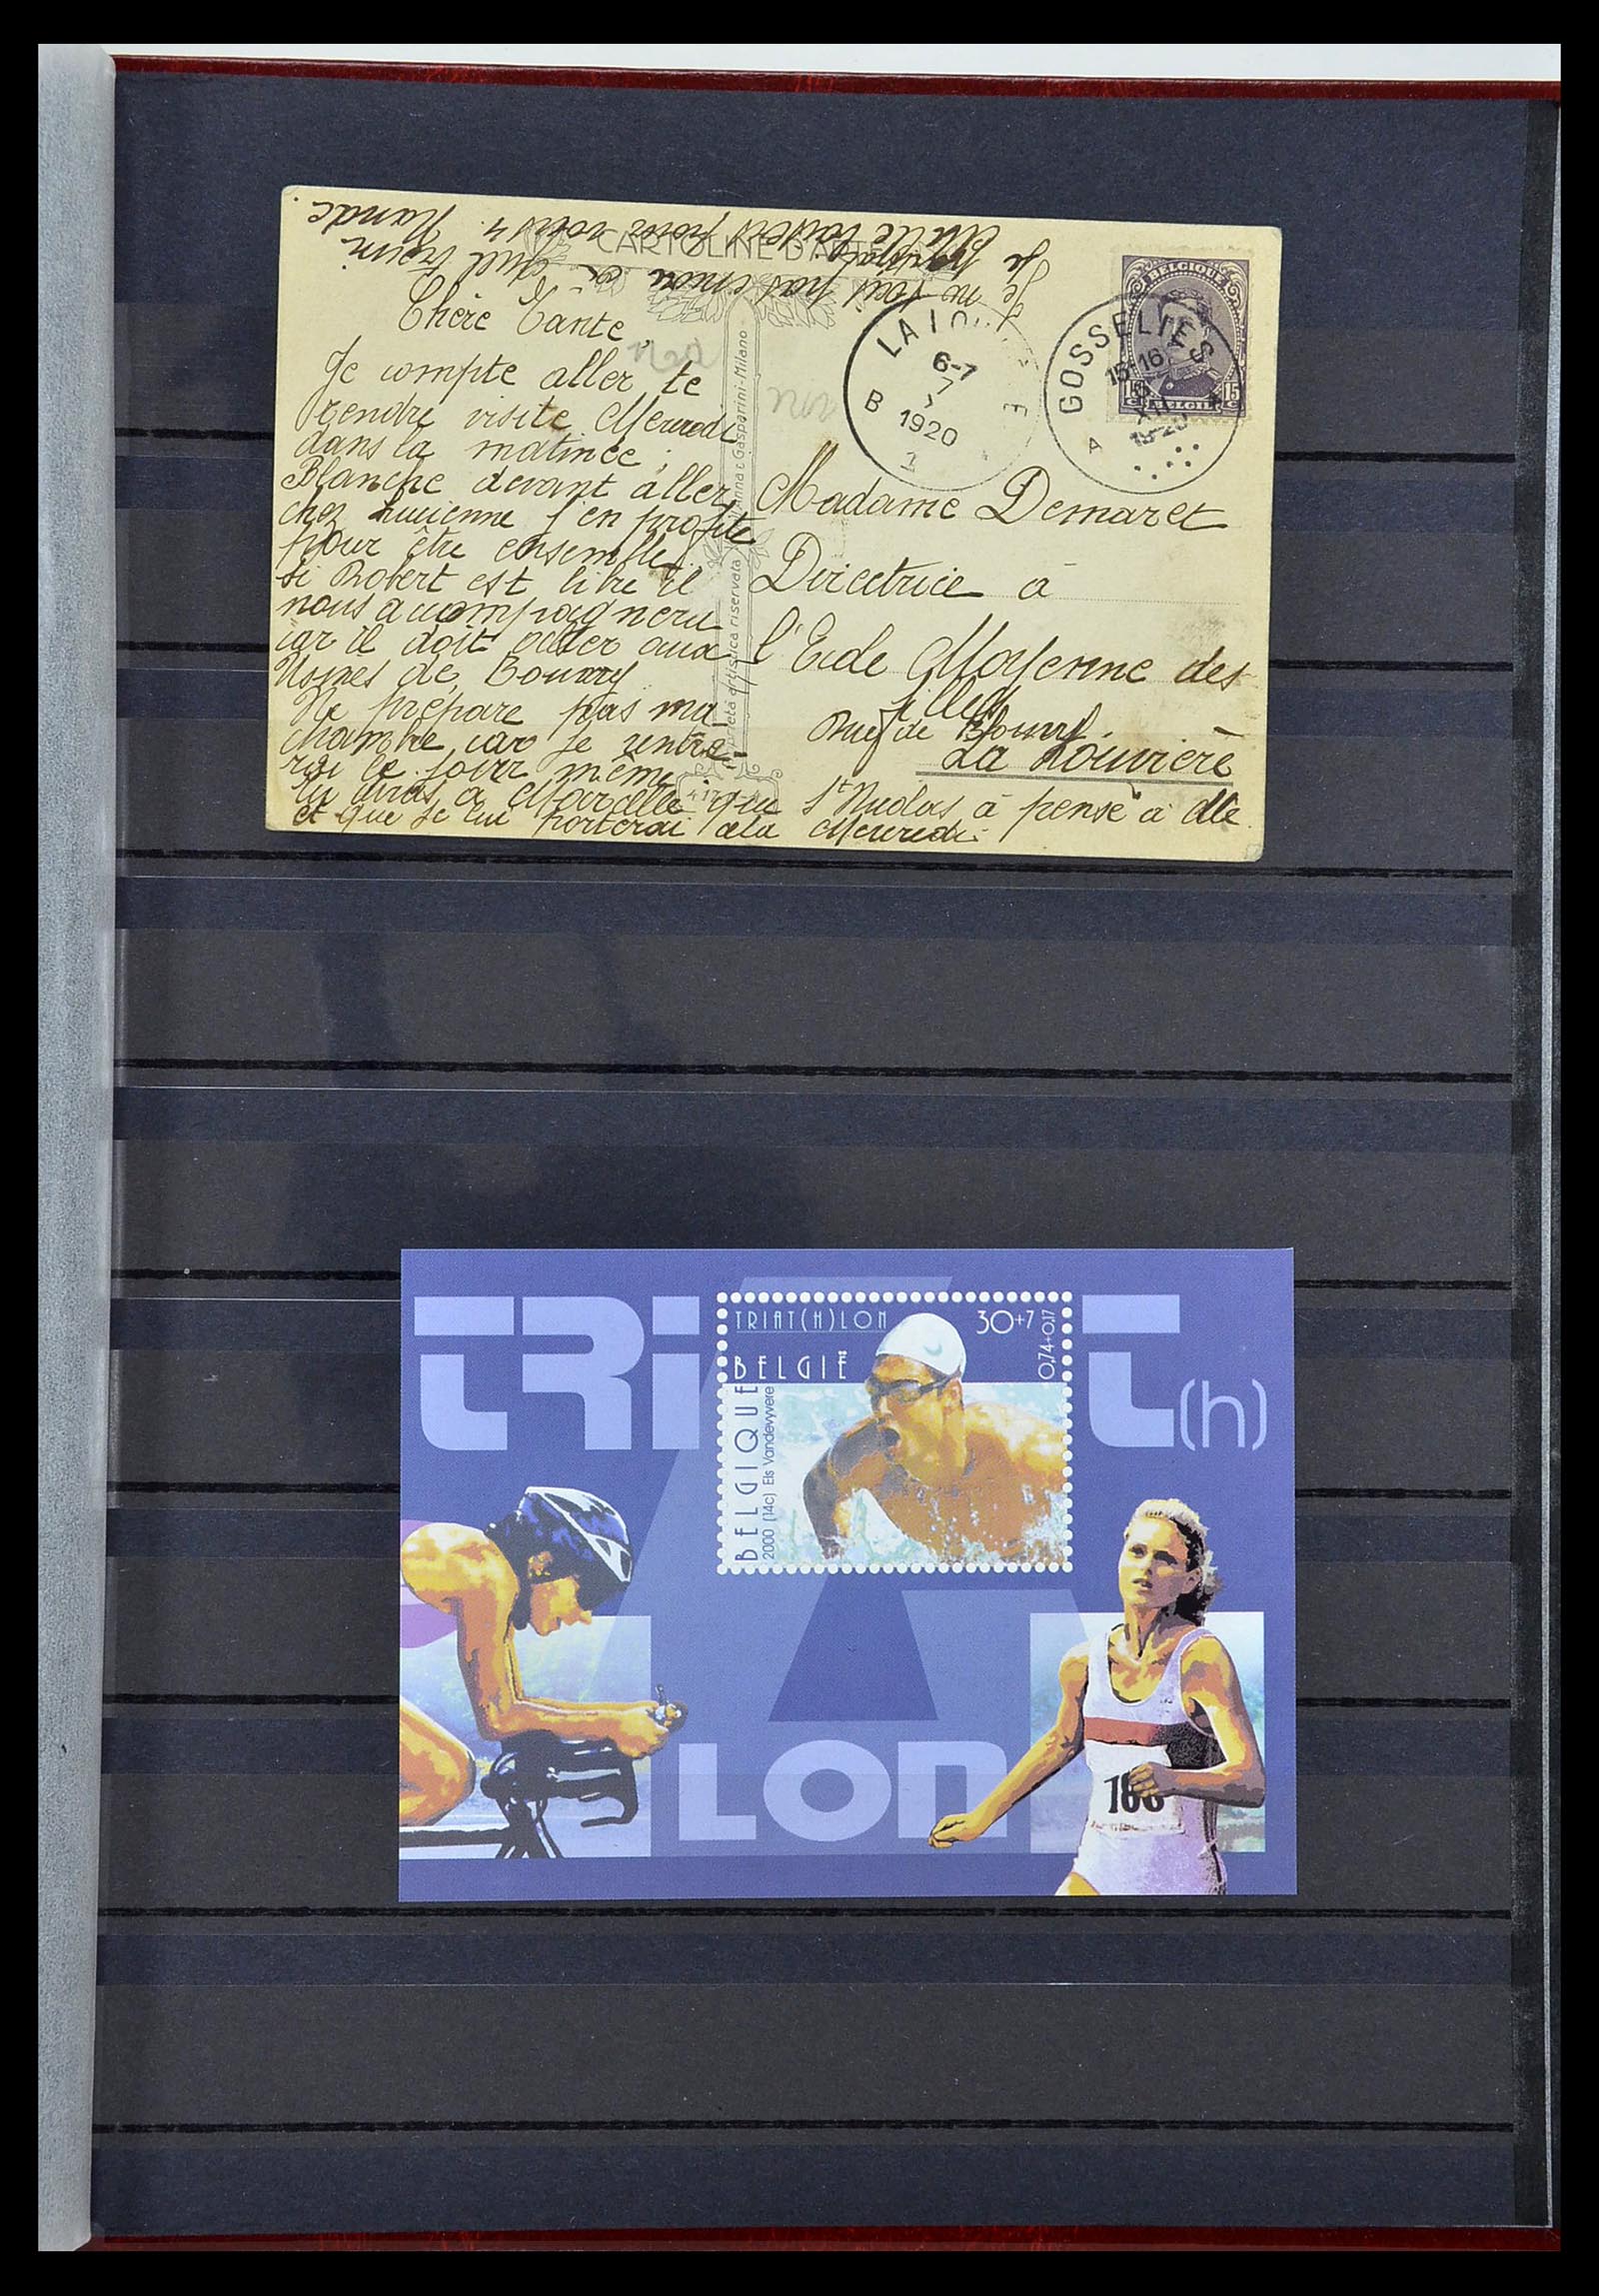 CARTOLINE D'ARTE
Je ne sais pas encore à quel train
Je
Mille baisers pour vous 4.
Nande.
Chère Tante,
Je compte aller te
rendre visite Mercredi
dans la matinée ;
Blanche devant aller
chez Lucienne j'en profite
pour être ensemble
si Robert est libre il
nous accompagnera
car il doit aller aux
Usines de Bouvy
Ne prépare pas ma
chambre car je rentre-
rai le soir même.
Tu diras à Marcelle que St Nicolas à pensé à elle
et que je lui porterai cela Mercredi.
Gasparini-Milano
Proprietà artistica riservata
LA LOU E
6-7
7
B 1920
GOSSELIES
15-16
6
XII
1920
A
BELGIQUE
15 15
C. BELGIË C.
Madame Demaret
Directrice à
l'Ecole Moyenne des
filles
Rue de Bouvy.
La Louvière
TRI
T(h)
LON
TRIAT(H)LON
30+7
0,74+0,17
BELGIË
BELGIQUE
2000 (14c) Els Vandevyvere